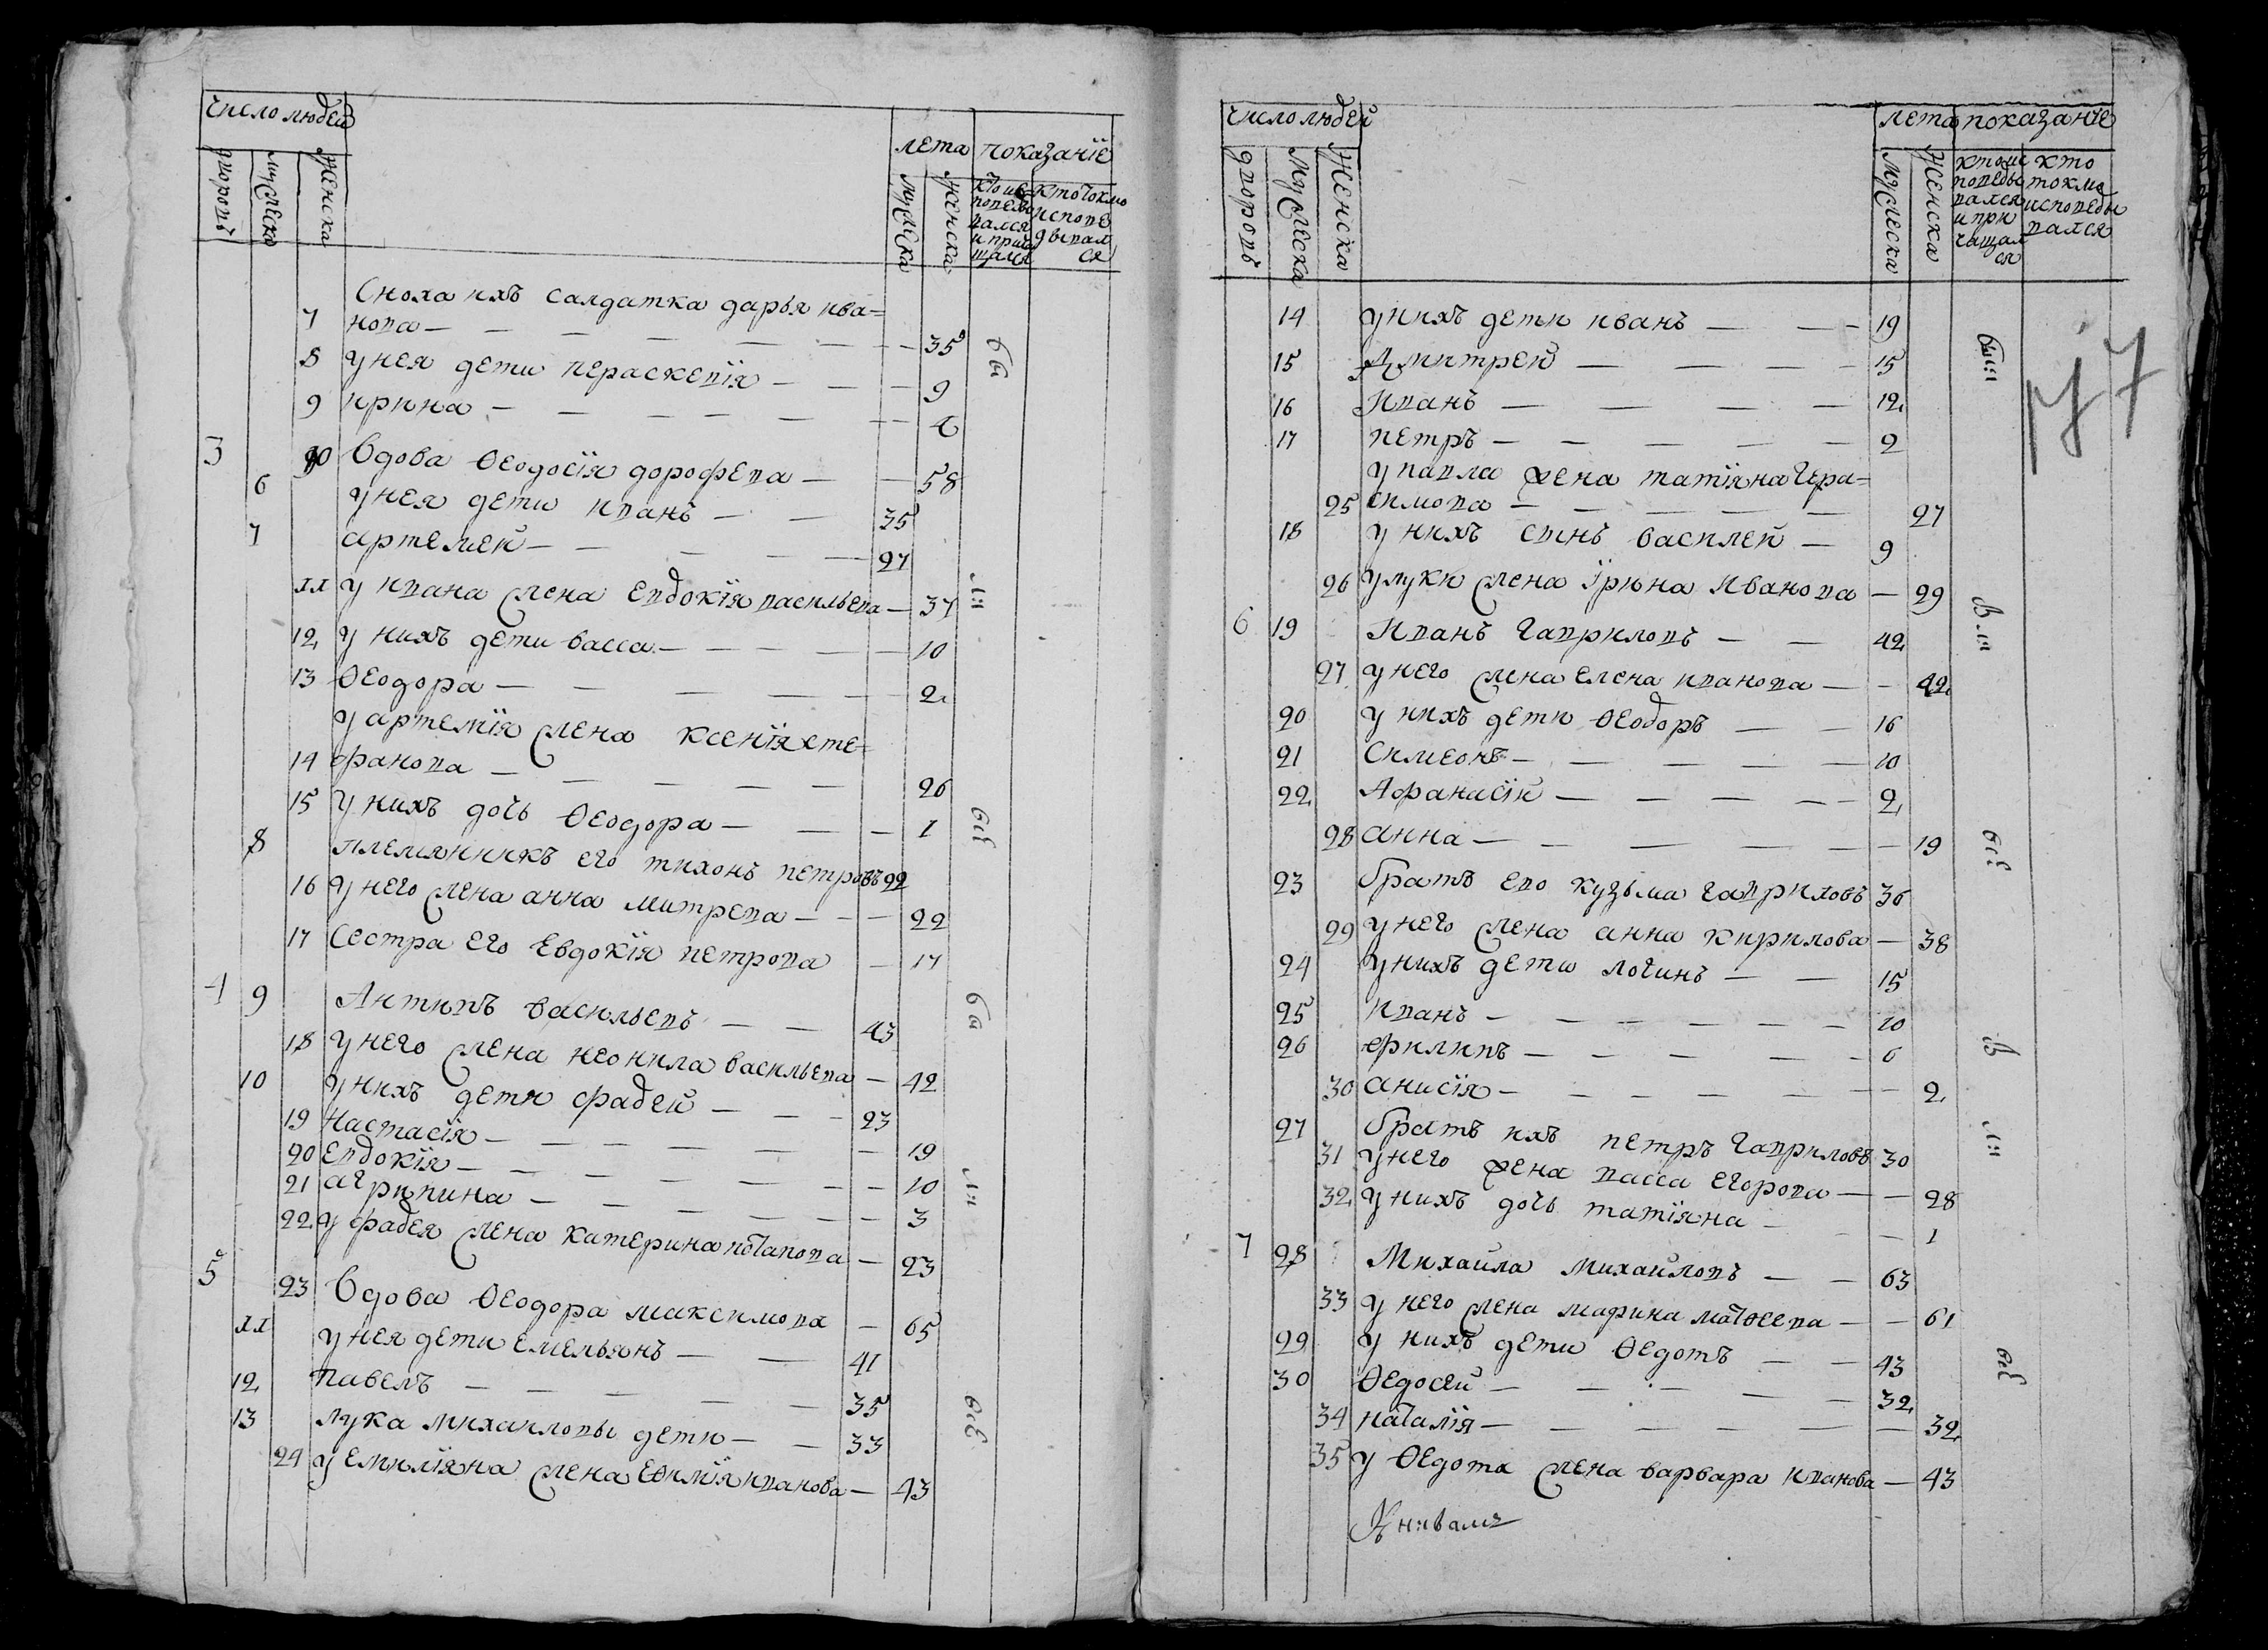 число людей
лета показаніе
дворовъ мужеска женска мужеска женска
кто исповедовался и причащался
кто токмо исповедывался
Сноха ихъ салдатка дарья ива=
7 нова — 35
8 у нея дети Пераскевія — 9
9 ирина —
3 10 Вдова Ѳеодосія дорофева — 58
6 у нея дети иванъ — 35
7 артемей — 27
11 у ивана жена Евдокія васильева — 37
12 у нихъ дети васса — 10
13 Ѳеодора — 2
у артемія жена ксенія сте=
14 фанова — 26
15 у нихъ дочь Ѳеодора — 1
8 племянникъ его тихонъ петровъ 22
16 у него жена анна митрева — 22
17 Сестра его Евдокія петрова — 17
4 9 Антипъ васильевъ — 43
18 у него жена неонила васильева — 42
10 у нихъ дети фадей — 23
19 Настасія — 19
20 Евдокія — 10
21 агрипина — 3
22 у фадея жена катерина потапова — 23
5 23 Вдова Ѳеодора максимова — 65
11 у нея дети Емельянъ — 41
12 Павелъ — 35
13 лука михаиловы дети — 33
24 у Емиліяна жена Еѳимія иванова — 43
бы
ли
всѣ
бы
ли
всѣ
число людей
лета показаніе
дворовъ мужеска женска мужеска женска
кто исповедывался и причащался
кто токмо исповедывался
77
14 у нихъ дети иванъ — 19
15 Дмитрей — 15
16 Иванъ — 12
17 петръ — 2
у павла жена татіяна Гера=
25 симова — 27
18 у нихъ сынъ василей — 9
26 у луки жена Їрина Иванова — 29
6 19 Иванъ Гавриловъ — 42
27 у него жена Елена иванова — 42
20 у нихъ дети Ѳеодоръ — 16
21 Симеонъ — 10
22 Афанасій — 2
28 анна — 19
23 братъ ево кузьма гавриловъ 36
29 у него жена анна кирилова — 38
24 у нихъ дети логинъ — 15
25 иванъ — 10
26 филипъ — 6
30 анисія — 2
27 братъ ихъ петръ Гавриловъ 30
31 у него жена васса Егорова — 28
32 у нихъ дочь татіяна — 1
7 28 Михайла михайловъ — 63
33 у него жена марина матѳеева — 61
29 у нихъ дети Ѳедотъ — 43
30 Ѳедосей — 32
34 наталія — 32
35 у Ѳедота жена варвара иванова — 43
были
в ли
всѣ
в
ли
всѣ